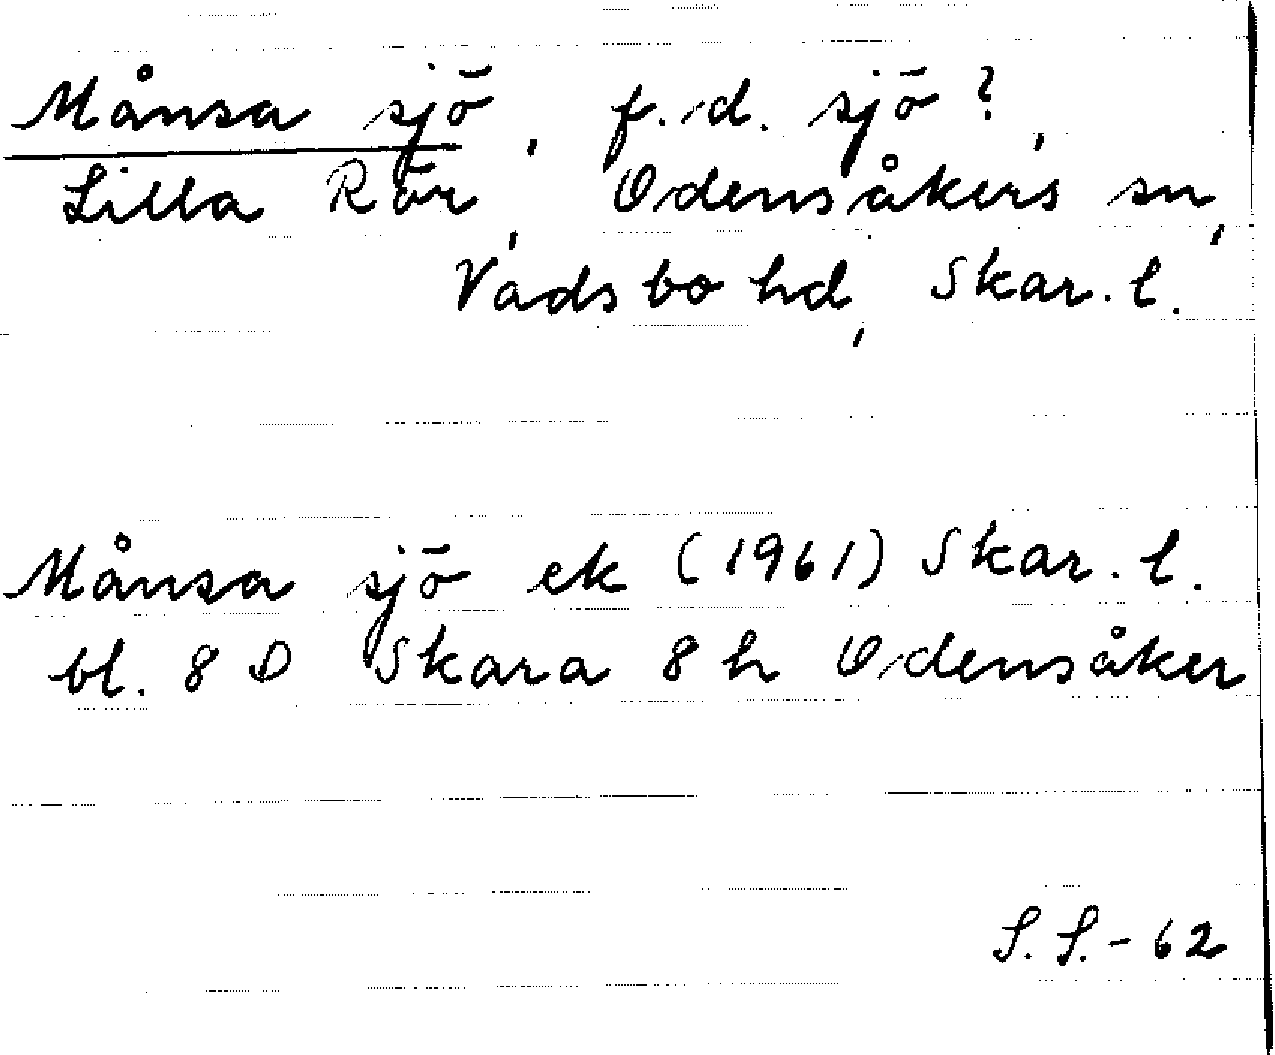 Månsa sjö, f.d. sjö?,
Lilla Rör, Odensåkers sn,
Vadsbo hd, Skar. l.
Månsa sjö ek (1961) Skar. l.
bl. 8 D Skara 8 h Odensåker
S. S. - 62